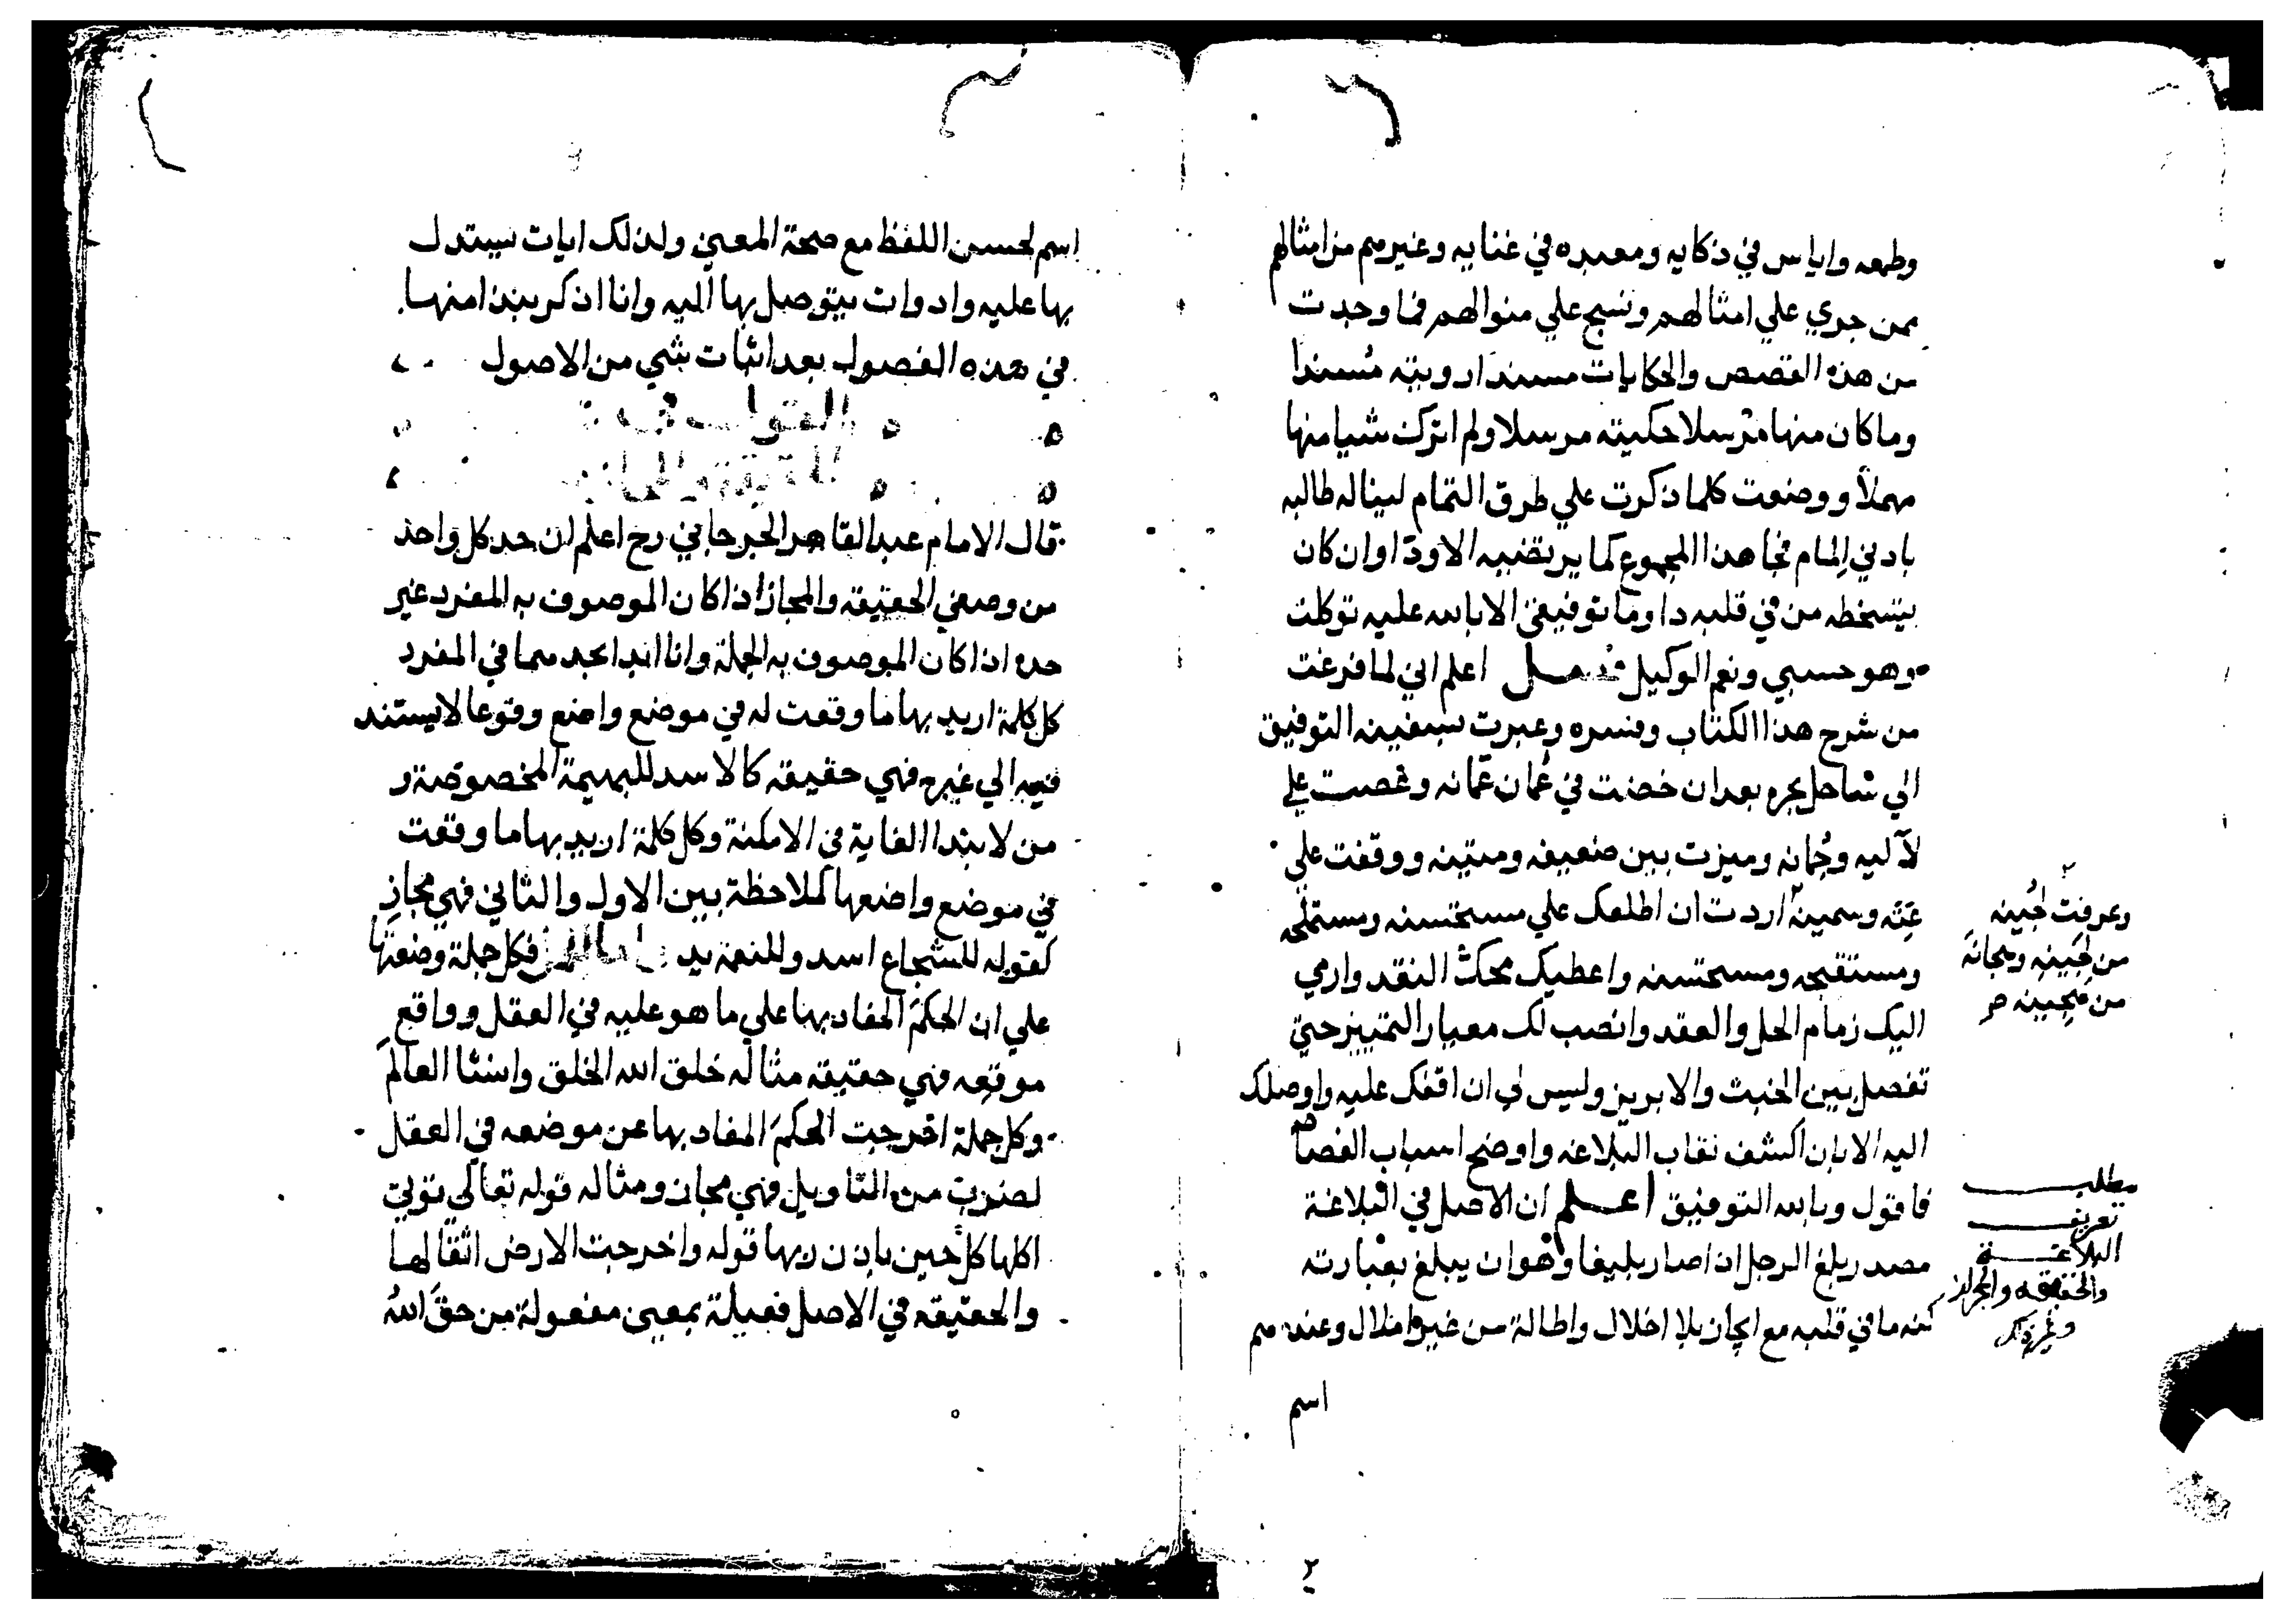 وطمعه واياس في ذكايه ومعبده في غنايه وغيرهم من امثالهم
ممن جري علي امثالهم ونسج علي منوالهم فما وجدت
من هذه القصص والحكايات مسندا رويته مُسندا
وما كان منها مرسلا حكيته مرسلا ولم اترك شيا منها
مهملاً ووضعت كلما ذكرت علي طرق التمام ليناله طالبه
بادني المام فجا هذا المجموع كما يرتضيه الاودا وان كان
يتسخطه من في قلبه دا وما توفيقي الا بالله عليه توكلت
وهو حسبي ونعم الوكيل فصل اعلم اني لما فرغت
من شرح هذا الكتاب وفسره وعبرت سفينه التوفيق
الي ساحل بحره بعد ان خضت في عُمان عمانه وغصت علي
لآليه وجُمانه وميزت بين ضعيفه ومتينه ووقفت علي
غثه وسمينه اردت ان اطلعك علي مستحسنه ومستملحه
ومستقبحه ومستحسنه واعطيك محك النقد وارمي
اليك زمام الحل والعقد وانصب لك معيار التمييز حتي
تفصل بين الخبث والابريز وليس لي ان اقفك عليه واوصلك
اليه الا بان اكشف نقاب البلاغه واوضح اسباب الفصا
فاقول وبالله التوفيق اعلم ان الاصل في البلاغة
مصدر بلغ الرجل اذا صار بليغا وهو ان يبلغ بعبارته
كنه ما في قلبه مع ايجاز بلا اخلال واطالة من غير املال وعندهم
اسم
وعرفت لجُينه
من لَجينه
مطلب
تعريف
البلاغة
والحقيقه والمجاز
وغير ذلك
٢
اسم لحسن اللفظ مع صحة المعني ولذلك ايات يستدل
بها عليه وادوات يتوصل بها اليه وانا اذكر نبذا منها
في هذه الفصول بعد اثبات شي من الاصول
القول في
الحقيقة والمجاز
قال الامام عبد القاهر الجرجاني رح اعلم ان حد كل واحد
من وصفي الحقيقه والمجاز اذا كان الموصوف به المفرد غير
حده اذا كان الموصوف به الجملة وانا ابدا بحدهما في المفرد
كل كلمة اريد بها ما وقعت له في موضع واضع وقوعا لا يستند
فيه الي غيره فهي حقيقه كالاسد للبهيمة المخصوصة و
من لابتدا الغاية في الامكنة وكل كلمة اريد بها ما وقعت
في موضع واضعها لملاحظة بين الاول والثاني فهي مجاز
كقوله للشجاع اسد وللنعمة يد فكل جملة وضعتها
علي ان الحكم المفاد بها علي ما هو عليه في العقل وواقع
موقعه فهي حقيقه مثاله خلق الله الخلق وانشا العالم
وكل جملة اخرجت الحكم المفاد بها عن موضعه في العقل
لضرب من التاويل فهي مجاز ومثاله قوله تعالى توتي
اكلها كل حين باذن ربها قوله واخرجت الارض اثقالها
والحقيقه في الاصل فعيلة بمعني مفعولة من حق الله